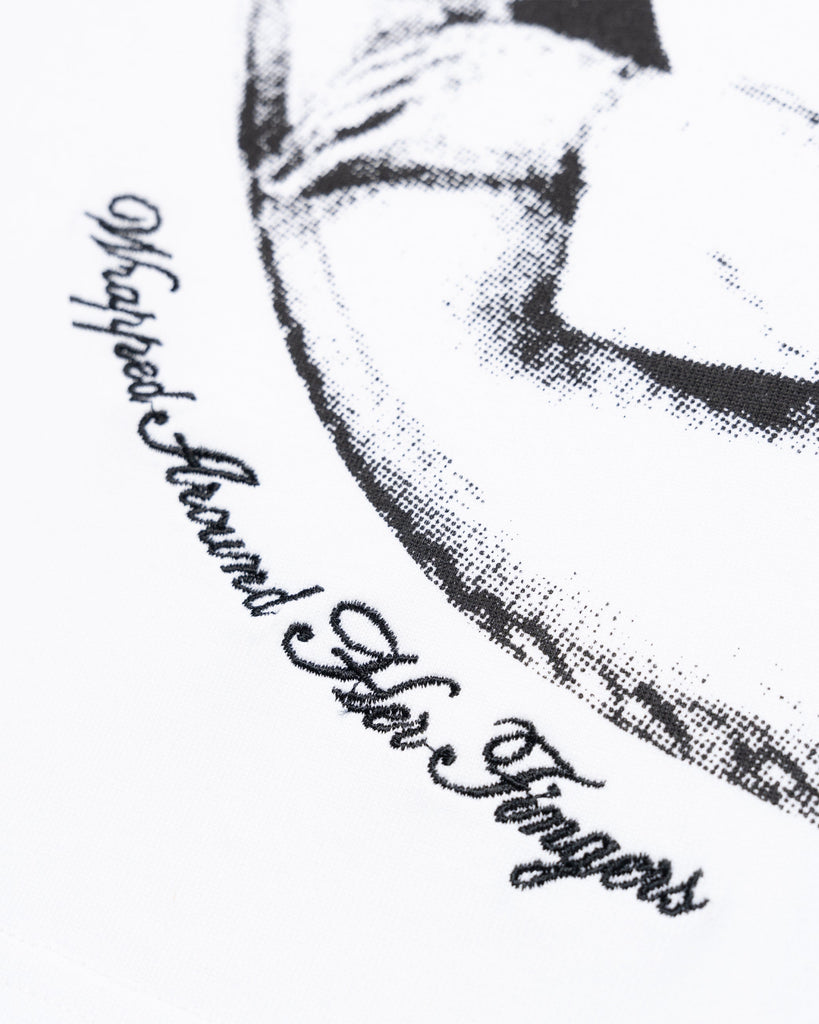 Wrapped Around Her Fingers